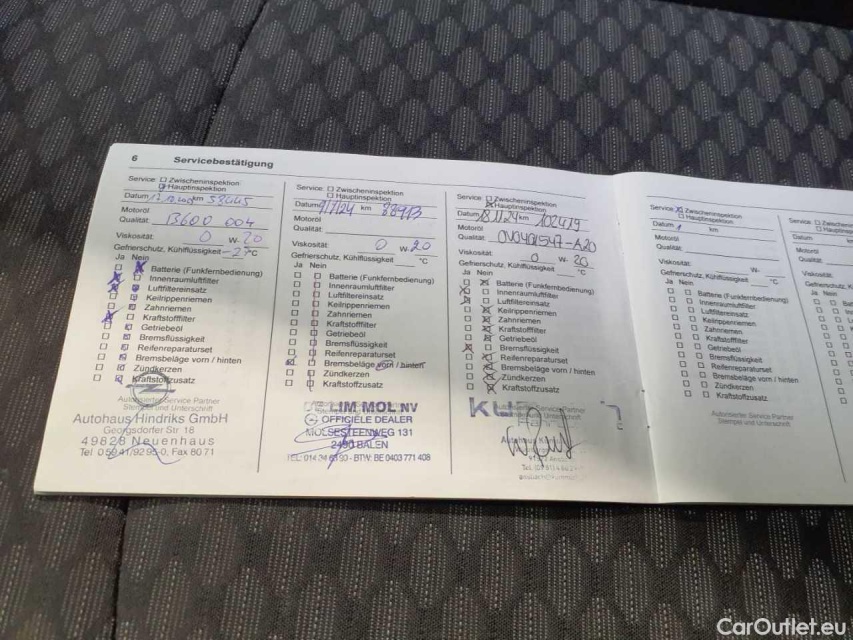 6 Servicebestätigung
Service: Zwischeninspektion
Hauptinspektion
Datum km
Motoröl
Qualität: B600 004
Viskosität: 0 W- 20
Gefrierschutz, Kühlflüssigkeit -27 °C
Ja Nein
Batterie (Funkfernbedienung)
Innenraumluftfilter
Luftfiltereinsatz
Keilrippenriemen
Zahnriemen
Kraftstofffilter
Getriebeöl
Bremsflüssigkeit
Reifenreparaturset
Bremsbeläge vorn / hinten
Zündkerzen
Kraftstoffzusatz
Autorisierter Service Partner
Stempel und Unterschrift
Autohaus Hindriks GmbH
Georgsdorfer Str 18
49828 Neuenhaus
Tel 0 59 41/92 95-0, Fax 80 71
Service: Zwischeninspektion
Hauptinspektion
Datum 9/7/24 km 88913
Motoröl
Qualität:
Viskosität: 0 W- 20
Gefrierschutz, Kühlflüssigkeit °C
Ja Nein
Batterie (Funkfernbedienung)
Innenraumluftfilter
Luftfiltereinsatz
Keilrippenriemen
Zahnriemen
Kraftstofffilter
Getriebeöl
Bremsflüssigkeit
Reifenreparaturset
Bremsbeläge vorn / hinten
Zündkerzen
Kraftstoffzusatz
LIM MOL NV
OFFICIËLE DEALER
MOLSESTEENWEG 131
2490 BALEN
BTW: BE 0403 771 408
Service: Zwischeninspektion
Hauptinspektion
Datum 18.11.24 km 102419
Motoröl
Qualität: OV0401547-A20
Viskosität: 0 W- 20
Gefrierschutz, Kühlflüssigkeit °C
Ja Nein
Batterie (Funkfernbedienung)
Innenraumluftfilter
Luftfiltereinsatz
Keilrippenriemen
Zahnriemen
Kraftstofffilter
Getriebeöl
Bremsflüssigkeit
Reifenreparaturset
Bremsbeläge vorn / hinten
Zündkerzen
Kraftstoffzusatz
Service: Zwischeninspektion
Hauptinspektion
Datum km
Motoröl
Qualität:
Viskosität: W-
Gefrierschutz, Kühlflüssigkeit °C
Ja Nein
Batterie (Funkfernbedienung)
Innenraumluftfilter
Luftfiltereinsatz
Keilrippenriemen
Zahnriemen
Kraftstofffilter
Getriebeöl
Bremsflüssigkeit
Reifenreparaturset
Bremsbeläge vorn / hinten
Zündkerzen
Kraftstoffzusatz
Autorisierter Service Partner
Stempel und Unterschrift
Service:
Datum
Motoröl
Qualität:
Viskosität:
Gefrierschutz,
Ja Nein
CarOutlet.eu